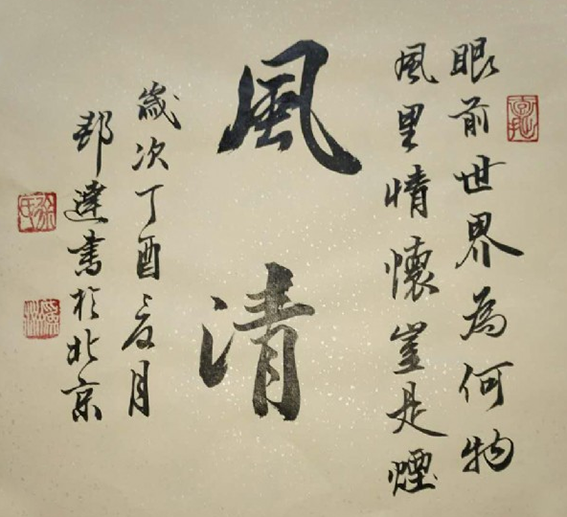 眼前世界為何物
風里情懷豈是煙
風清
歲次丁酉夏月
邵達書於北京